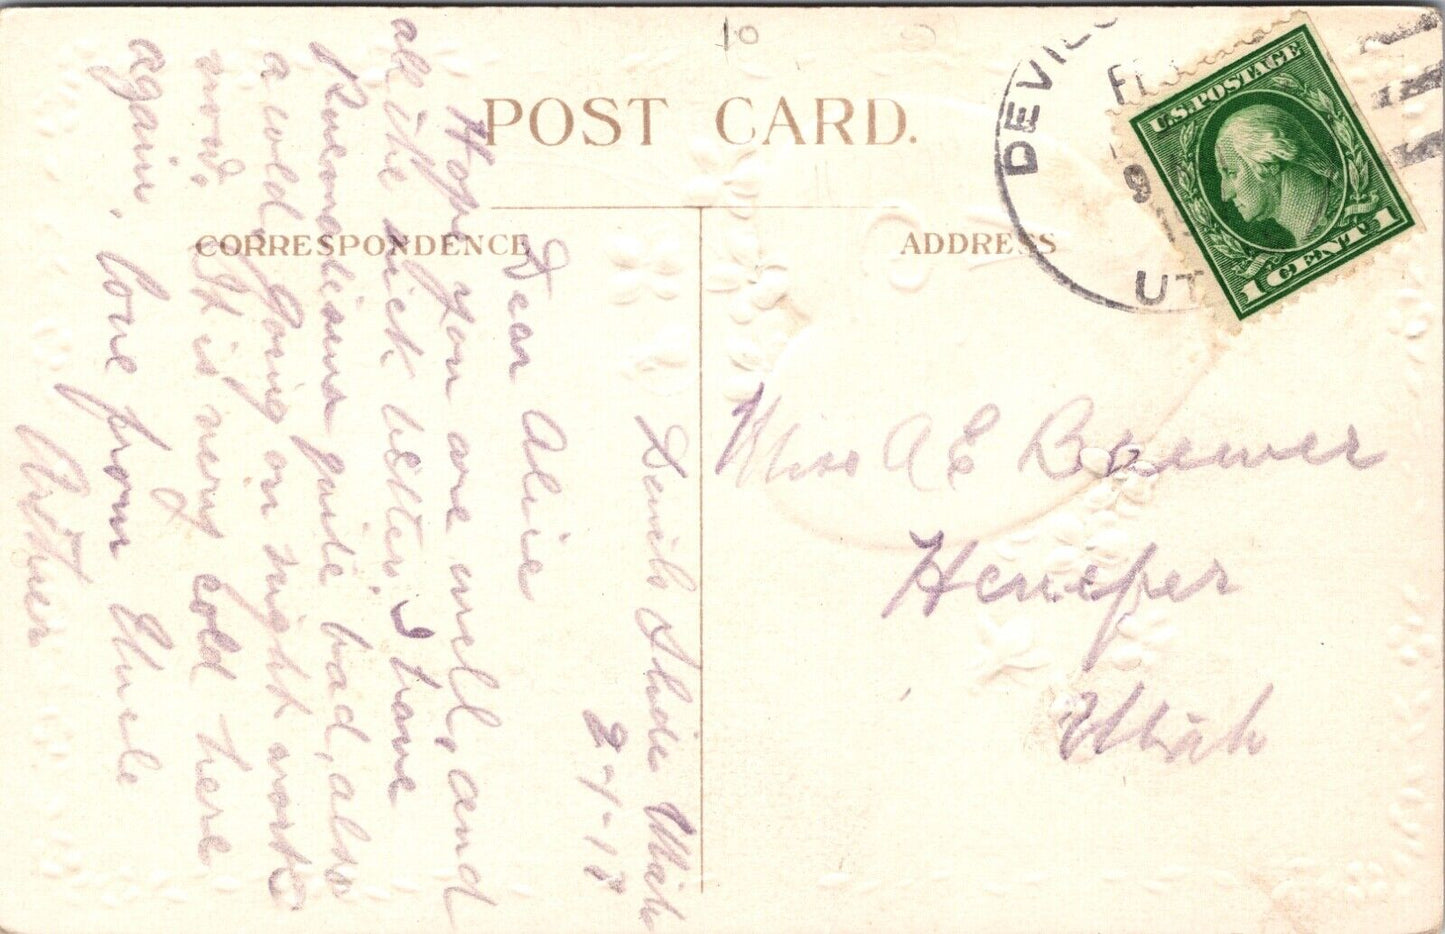 10
POST CARD.
CORRESPONDENCE
ADDRESS
DEVILS
9
UT
U.S. POSTAGE
1 CENT 1
Devils Slide Utah
2-9-18
Dear Alice
Hope you are well, and
all the sick better. I have
Ruemaitism quite bad, also
a cold going on night work
now. It is very cold here
again. Love from Uncle
Arther
Miss A E Brewer
Henefer
Utah